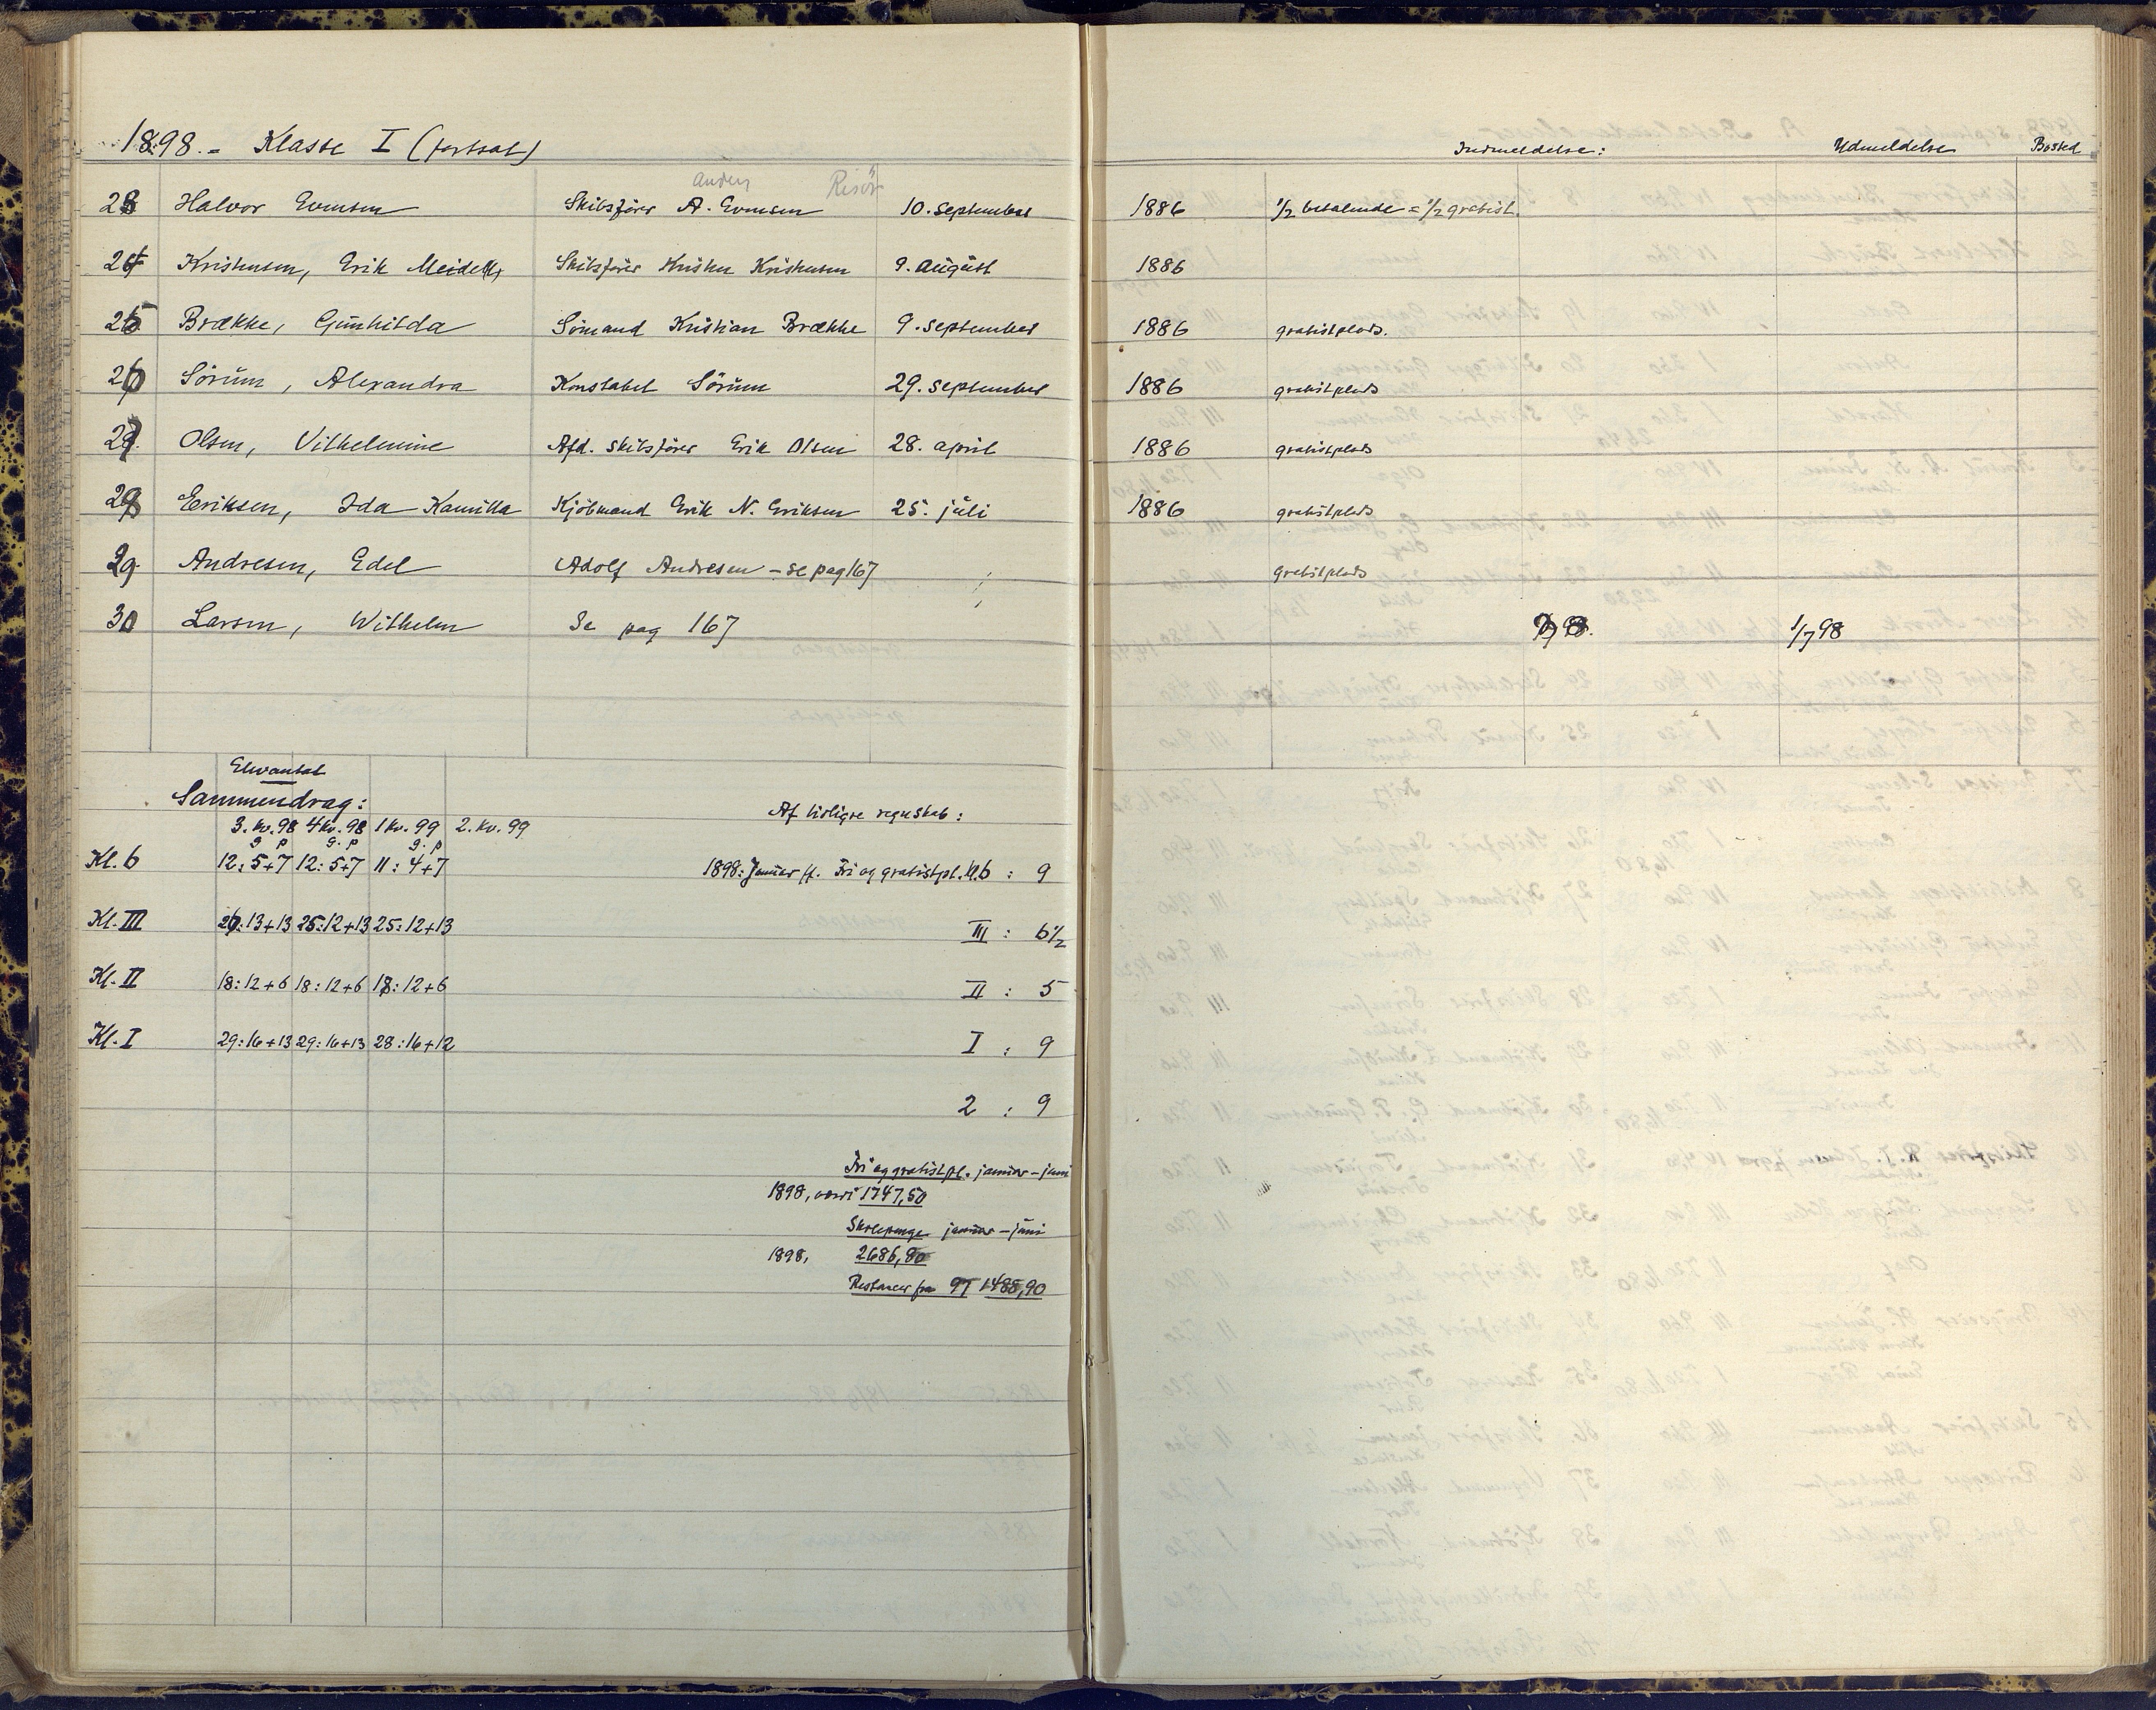 1898. - Klasse I (fortsat)
Indmeldelse: Udmeldelse Bosted
Anders Risör
23 Halvor Evensen Skibsfører A. Evensen 10. september 1886 1/2 betalende = 1/2 gratist.
24 Kristensen, Erik Meidell, Skibsfører Kristen Kristensen 9. august 1886
25 Brække, Gunhilda Sömand Kristian Brække 9. september 1886 gratistplads.
26 Sörum, Alexandra Konstabel Sörum 29. september 1886 gratistplads
27 Olsen, Vilhelmine Afd. skibsfører Erik Olsen 28. april 1886 gratistplads
28 Eriksen, Ida Kamilla Kjöbmand Erik N. Eriksen 25. juli 1886 gratistplads
29 Andresen, Edel Adolf Andresen - se pag 167 gratistplads
30 Larsen, Wilhelm Se pag 167 1/7 98
Elevantal
Sammendrag:
3. kv. 98 4 kv. 98 1 kv. 99 2. kv. 99
g p g. p g. p
Kl. 6 12: 5+7 12: 5+7 11: 4+7
Kl. III 26: 13+13 25: 12+13 25: 12+13
Kl. II 18: 12+6 18: 12+6 18: 12+6
Kl. I 29: 16+13 29: 16+13 28: 16+12
Af tidligre regnskab:
1898: Januar ff. Fri og gratistpl. Kl. 6 : 9
III : 6 1/2
II : 5
I : 9
2 : 9
Fri og gratistpl. januar - juni
1898, værdi 1747,50
Skolepenge januar - juni
1898, 2686,80
Restancer fra 97 1488,90